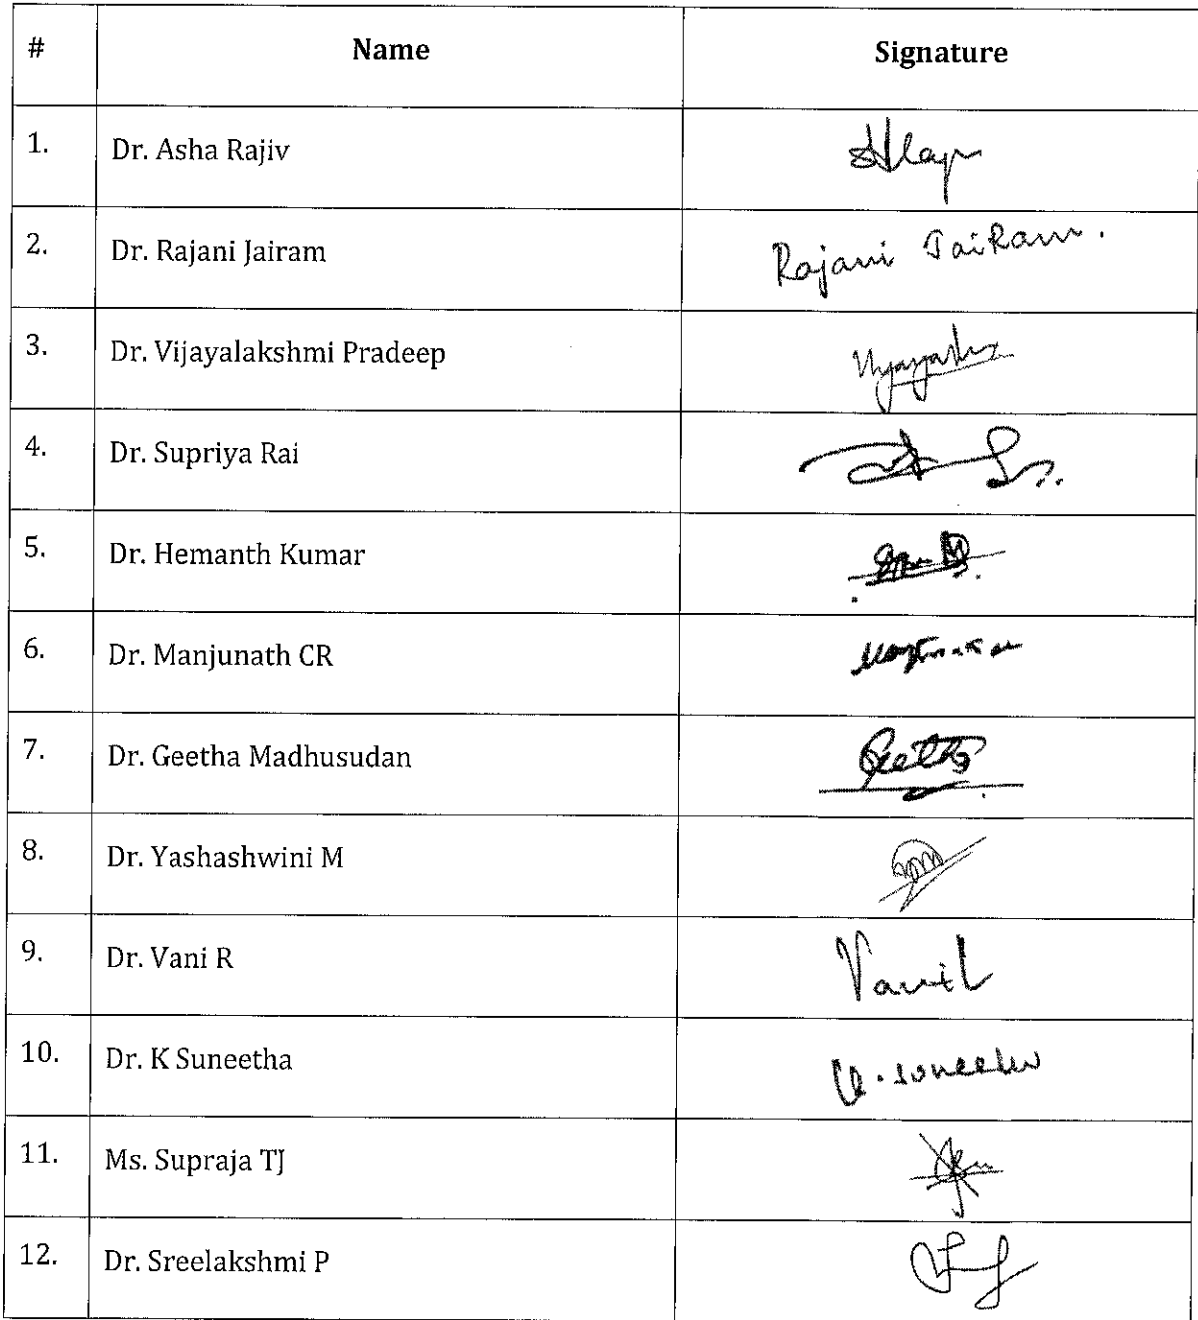 # Name Signature
1. Dr. Asha Rajiv
2. Dr. Rajani Jairam Rajani JaiRam.
3. Dr. Vijayalakshmi Pradeep
4. Dr. Supriya Rai
5. Dr. Hemanth Kumar
6. Dr. Manjunath CR
7. Dr. Geetha Madhusudan Geetha
8. Dr. Yashashwini M
9. Dr. Vani R
10. Dr. K Suneetha K. Suneetha
11. Ms. Supraja TJ
12. Dr. Sreelakshmi P